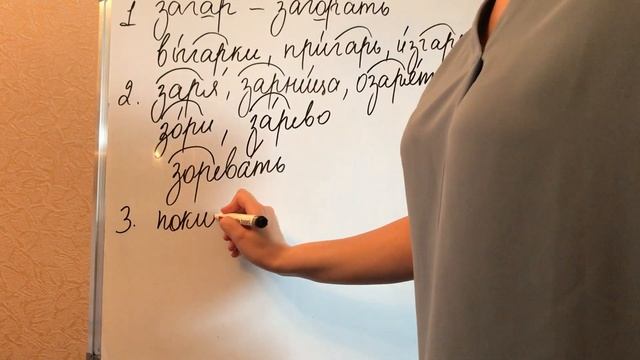 1 загар – загорать
выгарки, пригарь, изгарь
2. заря, зарница, озарят
зори, зарево
зоревать
3. поки